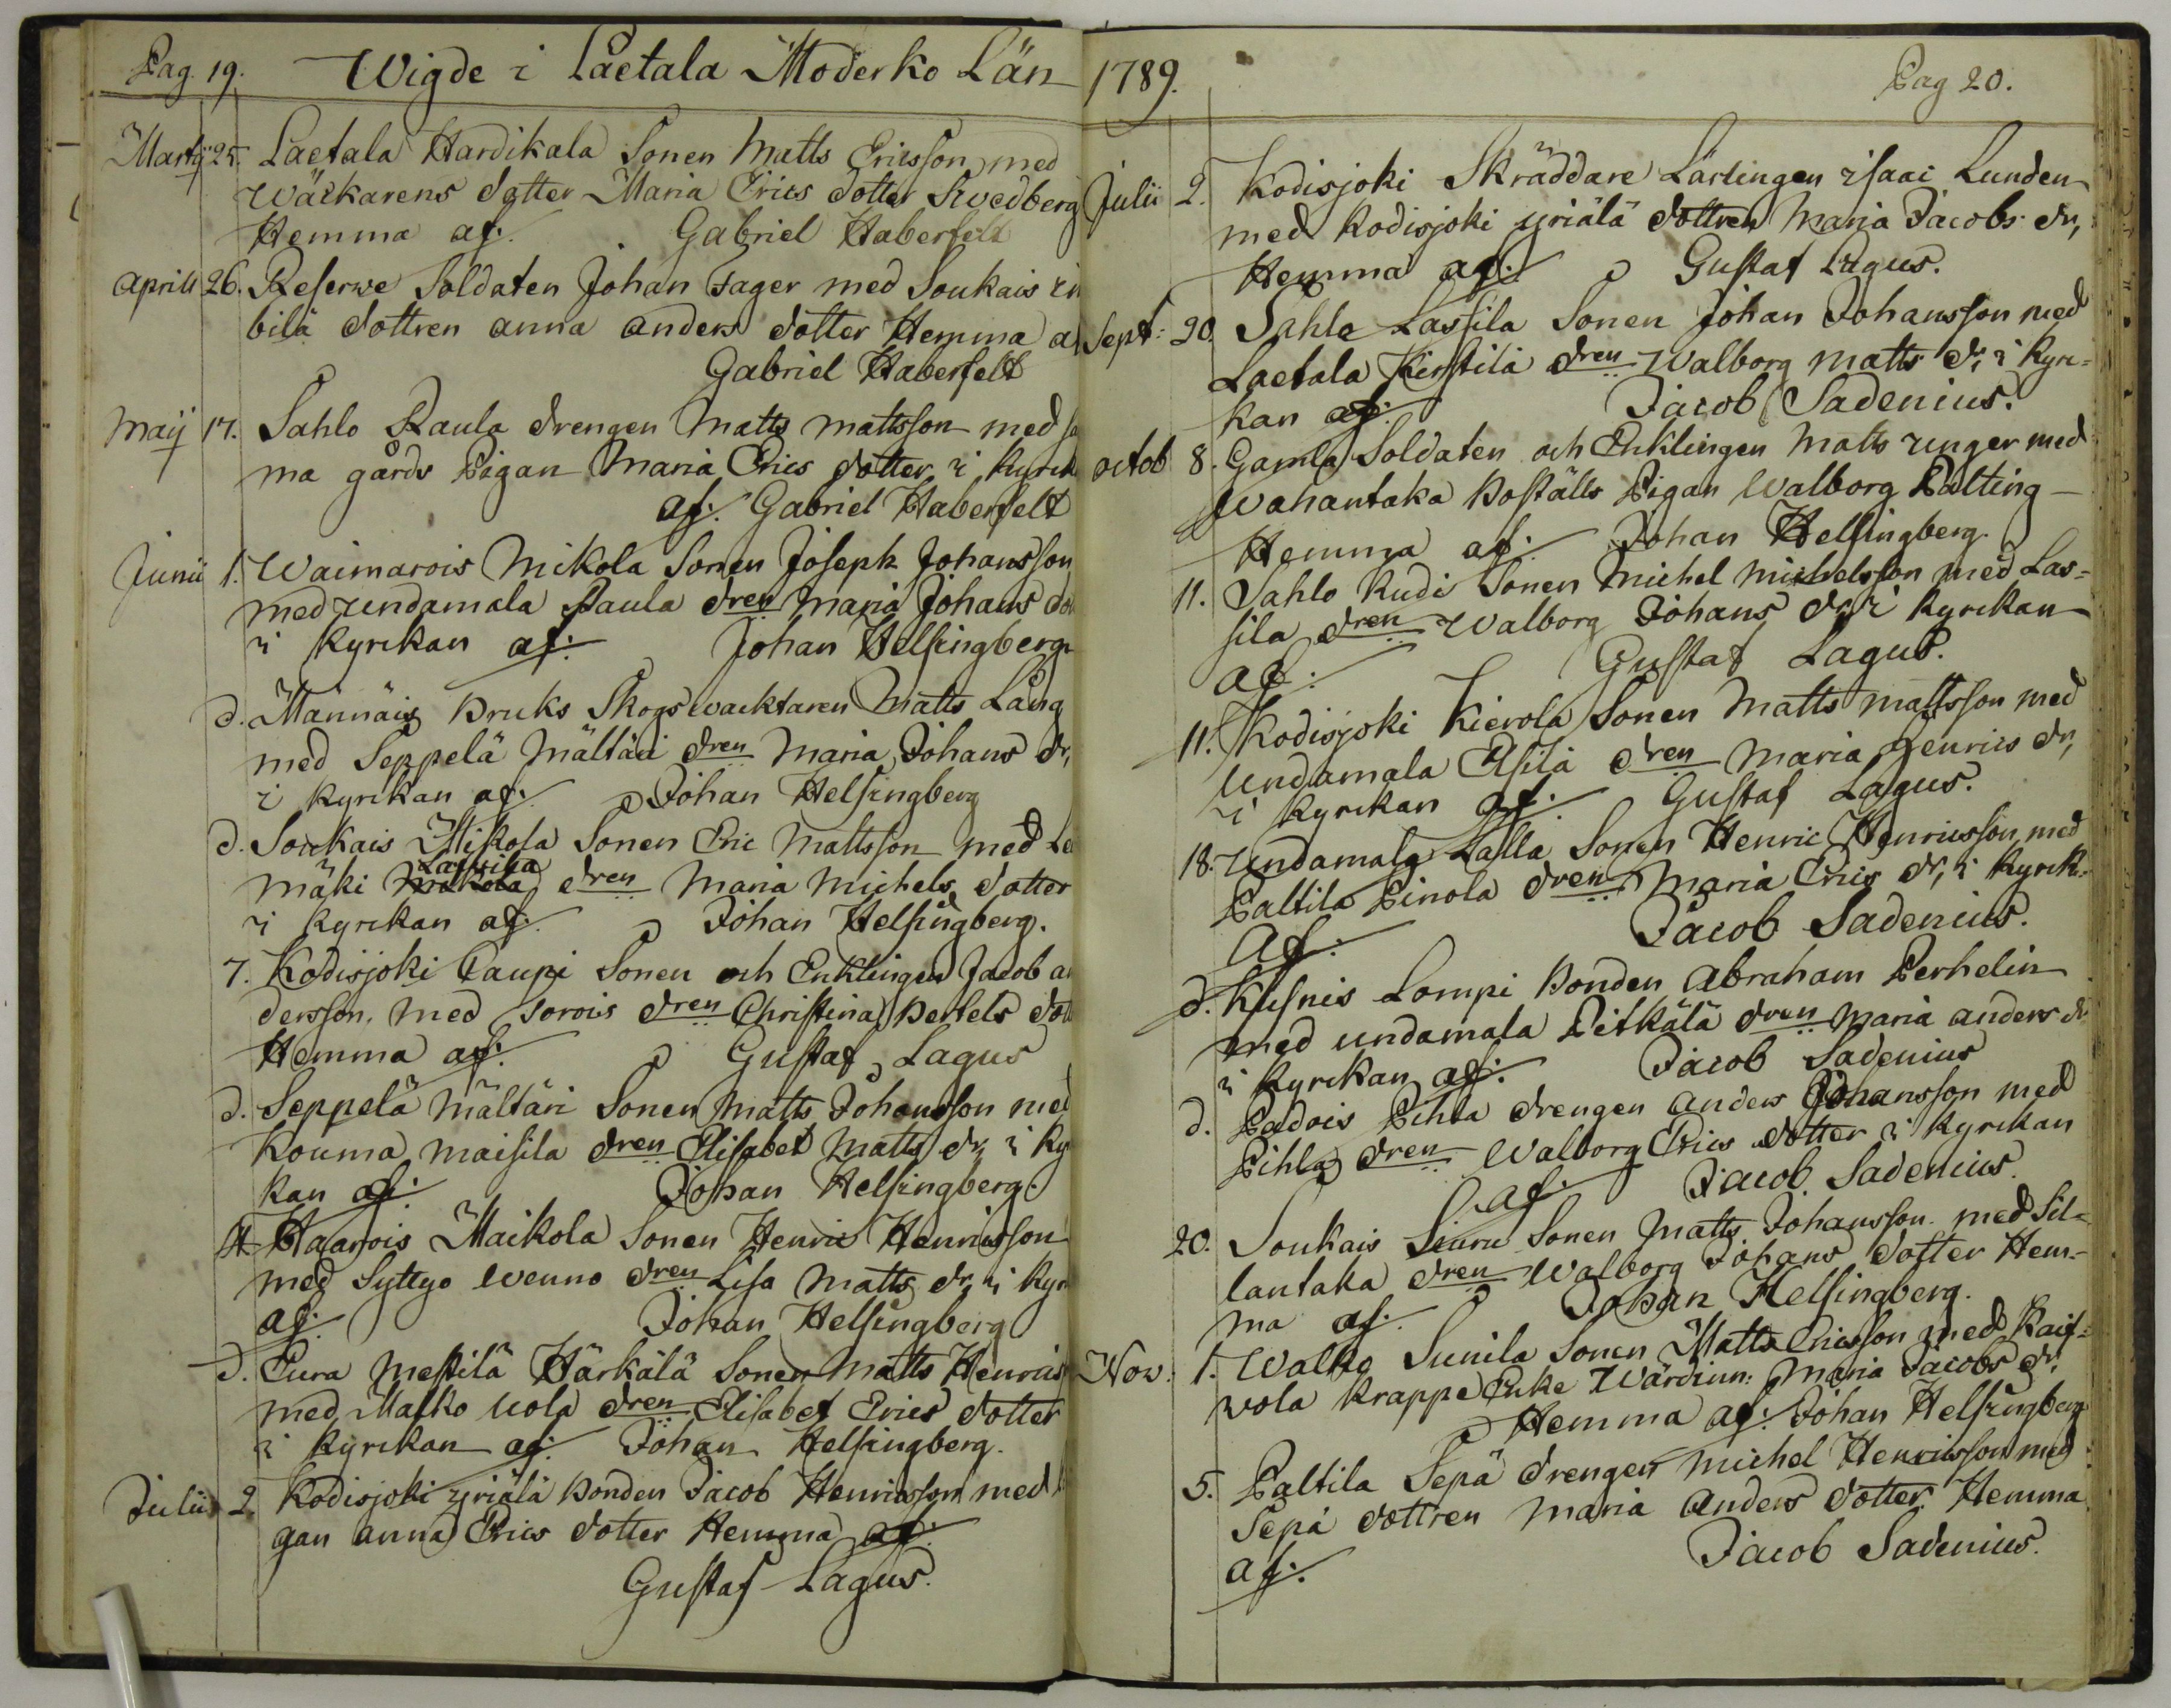 Pag. 19. Wigde i Laetala Moderko Län
Martij 25. Laetala Hardikala Sonen Matts Ericsson med
Wäckarens dotter Maria Erics dotter Swedberg
Hemma af: Gabriel Haberfelt
Aprill 26. Reserwe Soldaten Johan Fager med Soukais
bilä dottren anna anders dotter Hemma a
Gabriel Haberfelt
Maij 17. Sahlo Raula drengen Matts mattsson med
ma gårds Pigan Maria Erics dotter i Kyrck
af: Gabriel Haberfelt
Junii 1. Waimarois Mikola Sonen Joseph Johansson
med undamala Paula dren Maria Johans dot
i Kyrckan af: Johan Helsingberg
d. Männäis Bruks Skogswacktaren Matts Lång
med Seppelä Mältäri dren Maria Johans dr,
i Kyrckan af: Johan Helsingberg
d. Soukais Mikola Sonen Eric Mattsson med Le
mäki Lassila dren Maria Michels dotter
i Kyrckan af: Johan Helsingberg.
7. Kodisjoki Caupi Sonen och Encklingen Jacob an
dersson, med Sorois dren Christina Bertels dott
Hemma af: Gustaf Lagus
d. Seppelä Mältäri Sonen Matts Johansson med
Kouma maisila dren Elisabet Matts dr, i Ky
kan af: Johan Helsingberg.
14. Haarois Maikola Sonen Henric Henricsson
med Syttyo wenno dren Lisa Matts dr, i Kyr
af: Johan Helsingberg
d. Eura Mestilä Härkälä Sonen Matts Henrics
med Malko uola dren Elisabet Erics dotter
i Kyrckan af: Johan Helsingberg.
Julii 2. Kodisjoki yriälä Bonden Jacob Henricsson med
gan anna Erics dotter Hemma af:
Gustaf Lagus.
1789. Pag 20.
Julii 2. Kodisjoki Skräddare Lärlingen isaac Lunden
med Kodisjoki yriälä dottren Maria Jacobs dr,
Hemma af: Gustaf Lagus.
Sept: 20. Sahlo Lassila Sonen Johan Johansson med
Laetala Kirstilä dren Walborg matts dr, i Kyrc-
kan af: Jacob Sadenius.
octob 8. Gamla Soldaten och Encklingen Matts unger med
Wahantaka Boställs Pigan Walborg Palting
Hemma af: Johan Helsingberg.
11. Sahlo Kudi Sonen Michel michelsson med Las-
sila dren Walborg Johans dr, i Kyrckan
af: Gustaf Lagus.
11. Kodisjoki Kierola Sonen Matts mattsson med
undamala Elsilä dren Maria Henrics dr,
i Kyrckan af: Gustaf Lagus.
18. undamala Lalla Sonen Henric Henricsson med
Paltila Pinola dren Maria Erics dr, i Kyrck:
Af: Jacob Sadenius.
d. Kusnis Lompi Bonden Abraham Perhelin
med undamala Pitkälä dren Maria anders dr
i Kyrckan af: Jacob Sadenius
d. Padois Pihla drengen anders Johansson med
Pihla dren Walborg Erics dotter i Kyrckan
af: Jacob Sadenius.
20. Soukais Siuru Sonen Matts Johansson med Sil-
lantaka dren Walborg Johans dotter Hem-
ma af: Johan Helsingberg.
Now: 1. Walko Sunila Sonen Matts Ericsson med Kait-
wola Krappe Enke Wärdinn: Maria Jacobs dr,
Hemma af: Johan Helsingberg
5. Paltila Sepä drengen Michel Henricsson med
Sepä dottren Maria Anders dotter Hemma
af: Jacob Sadenius.